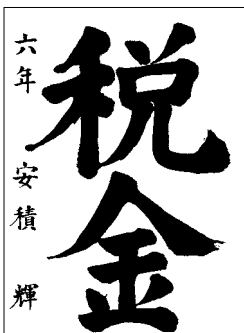 税金
六年 安積 輝